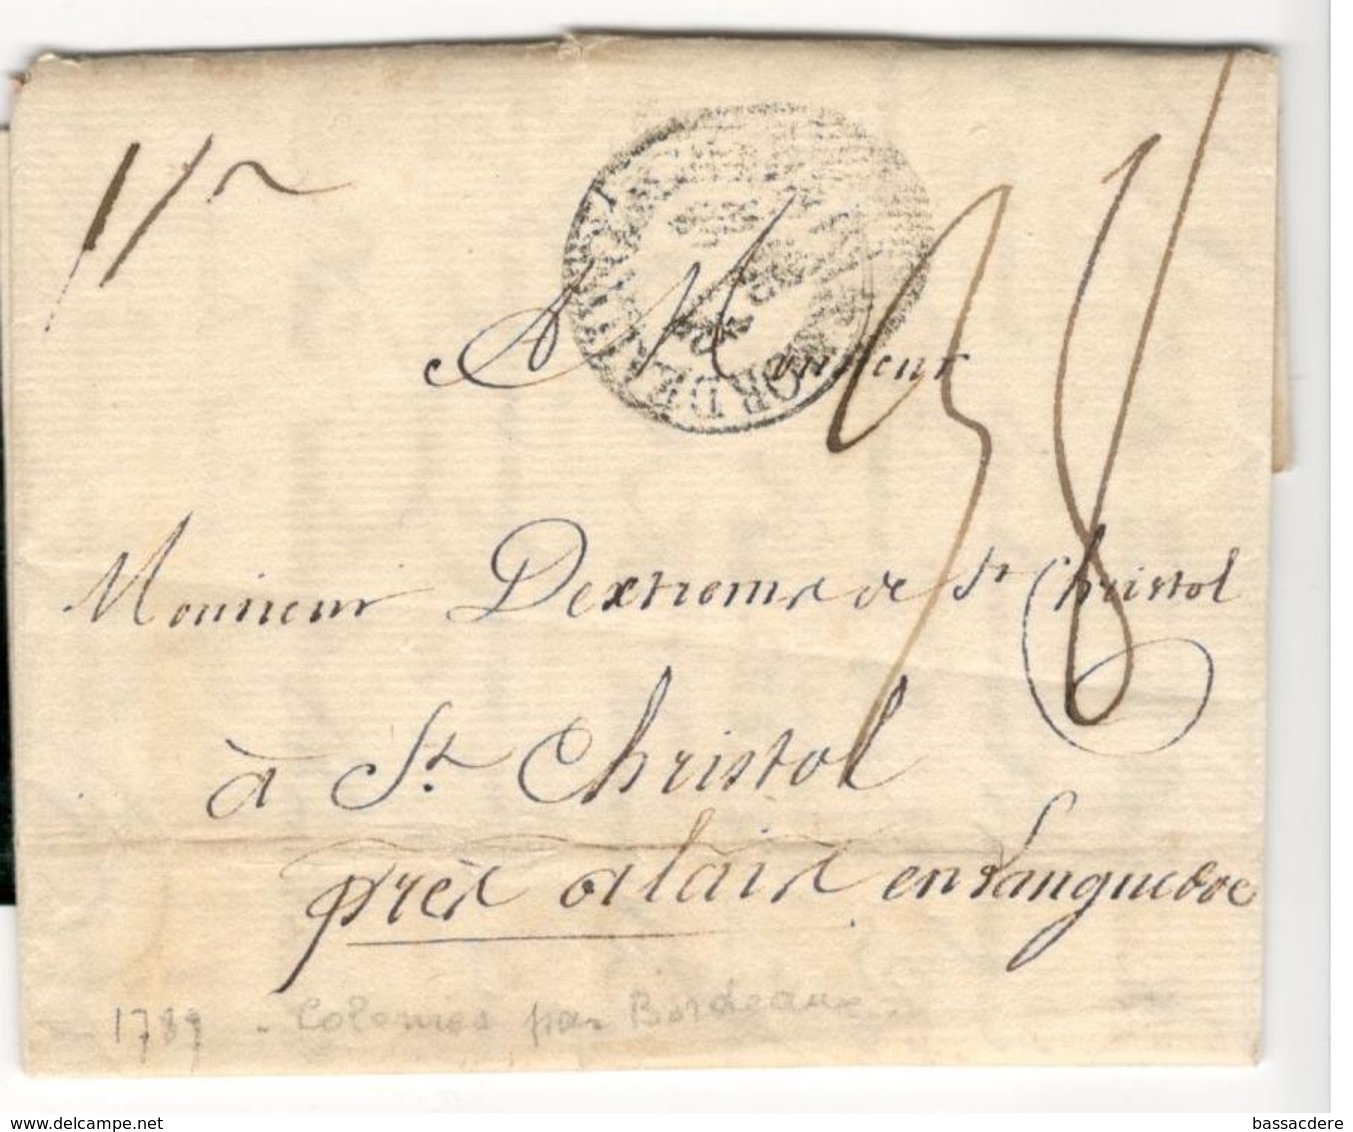 A Monsieur
38
Monsieur Dextreme de St Christol
à St. Christol
près alaix en Languedoc
1789 - Colonies par Bordeaux
www.delcampe.net
bassacdere